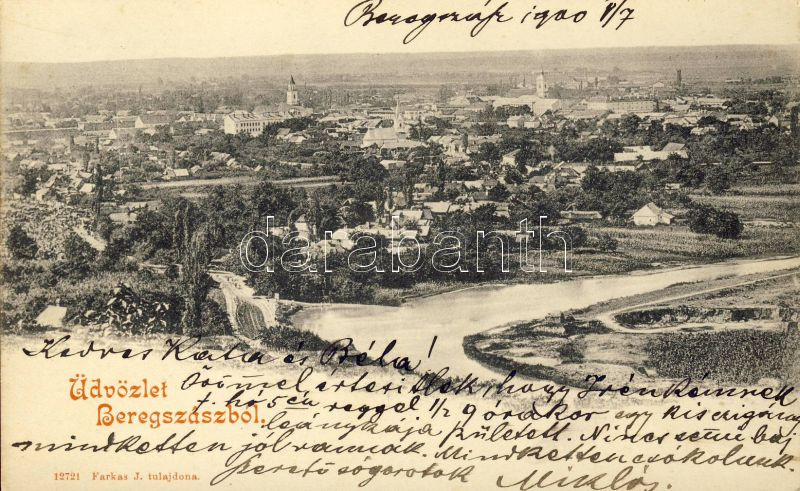 Beregszász 1900 V/7
darabanth
Kedves Kata és Béla!
Üdvözlet
Beregszászból.
Örömmel értesitlek, hogy Irén
f. hó 5én reggel 1/2 9 órakor egy kis czigány
leánykája született. Nincs semmi baj
mindketten jól vannak. Mindketten csókolunk.
szerető sógorotok Miklós.
12721 Farkas J. tulajdona.